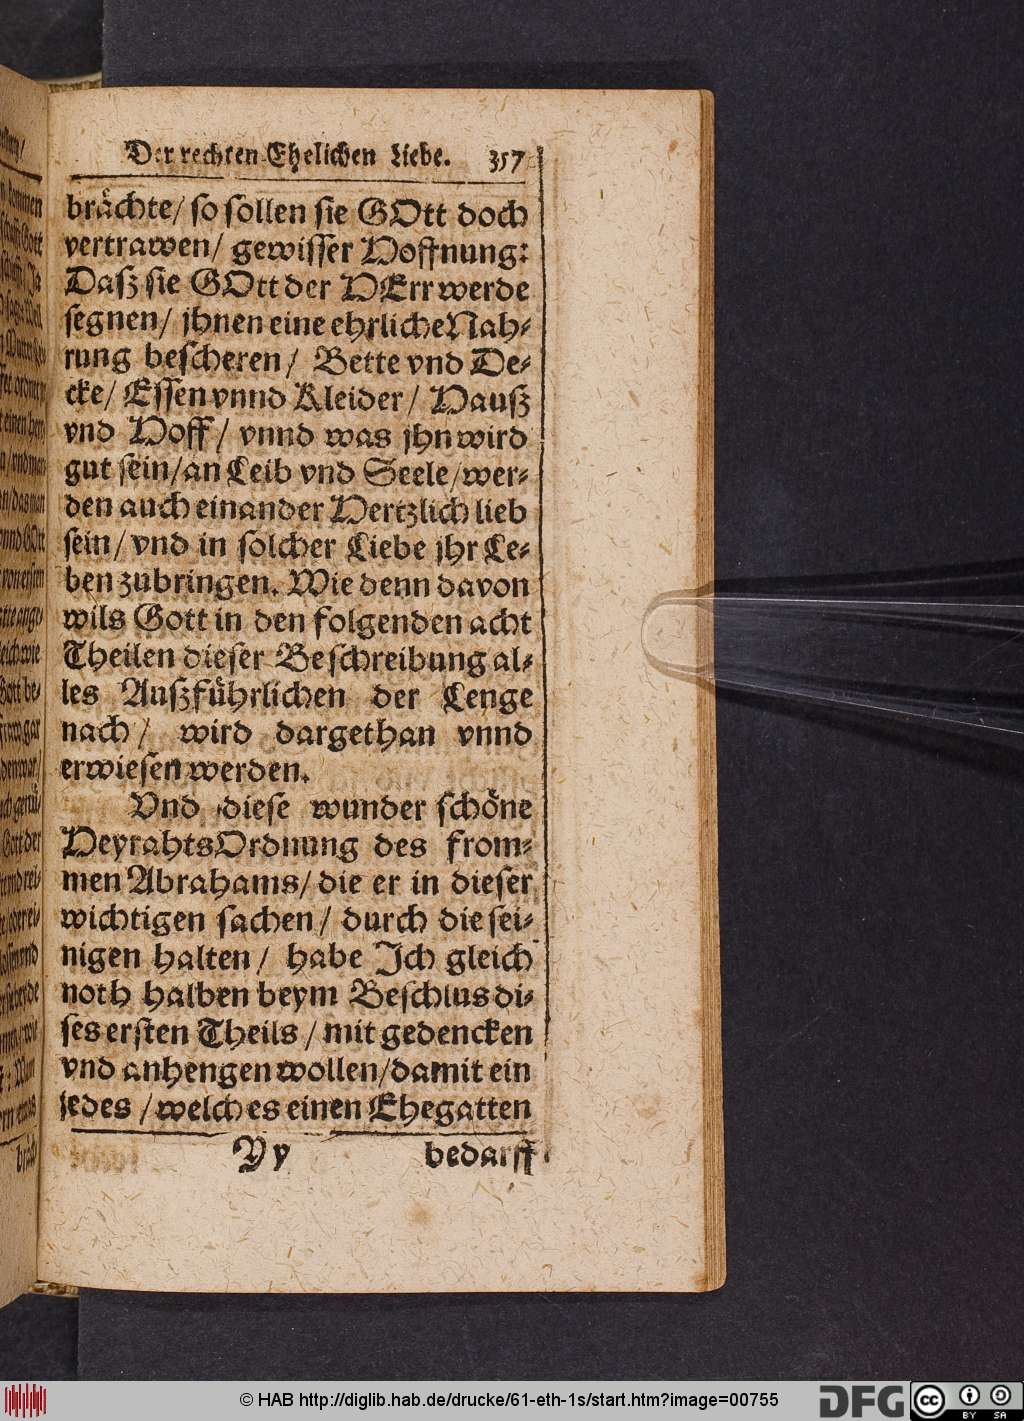 Der rechten Ehelichen Liebe. 357
brächte/ so sollen sie GOtt doch
vertrawen/ gewisser Hoffnung:
Dasz sie GOtt der HErr werde
segnen/ jhnen eine ehrliche Nah-
rung bescheren/ Bette vnd De-
cke/ Essen vnnd Kleider/ Hausz
vnd Hoff/ vnnd was jhn wird
gut sein/ an Leib vnd Seele/ wer-
den auch einander Hertzlich lieb
sein/ vnd in solcher Liebe jhr Le-
ben zubringen. Wie denn davon
wils Gott in den folgenden acht
Theilen dieser Beschreibung al-
les Auszführlichen der Lenge
nach/ wird dargethan vnnd
erwiesen werden.
Vnd diese wunder schöne
HeyrahtsOrdnung des from-
men Abrahams/ die er in dieser
wichtigen sachen/ durch die sei-
nigen halten/ habe Jch gleich
noth halben beym Beschlus di-
ses ersten Theils/ mit gedencken
vnd anhengen wollen/ damit ein
jedes/ welches einen Ehegatten
Yy bedarff
© HAB http://diglib.hab.de/drucke/61-eth-1s/start.htm?image=00755
DFG
cc BY SA